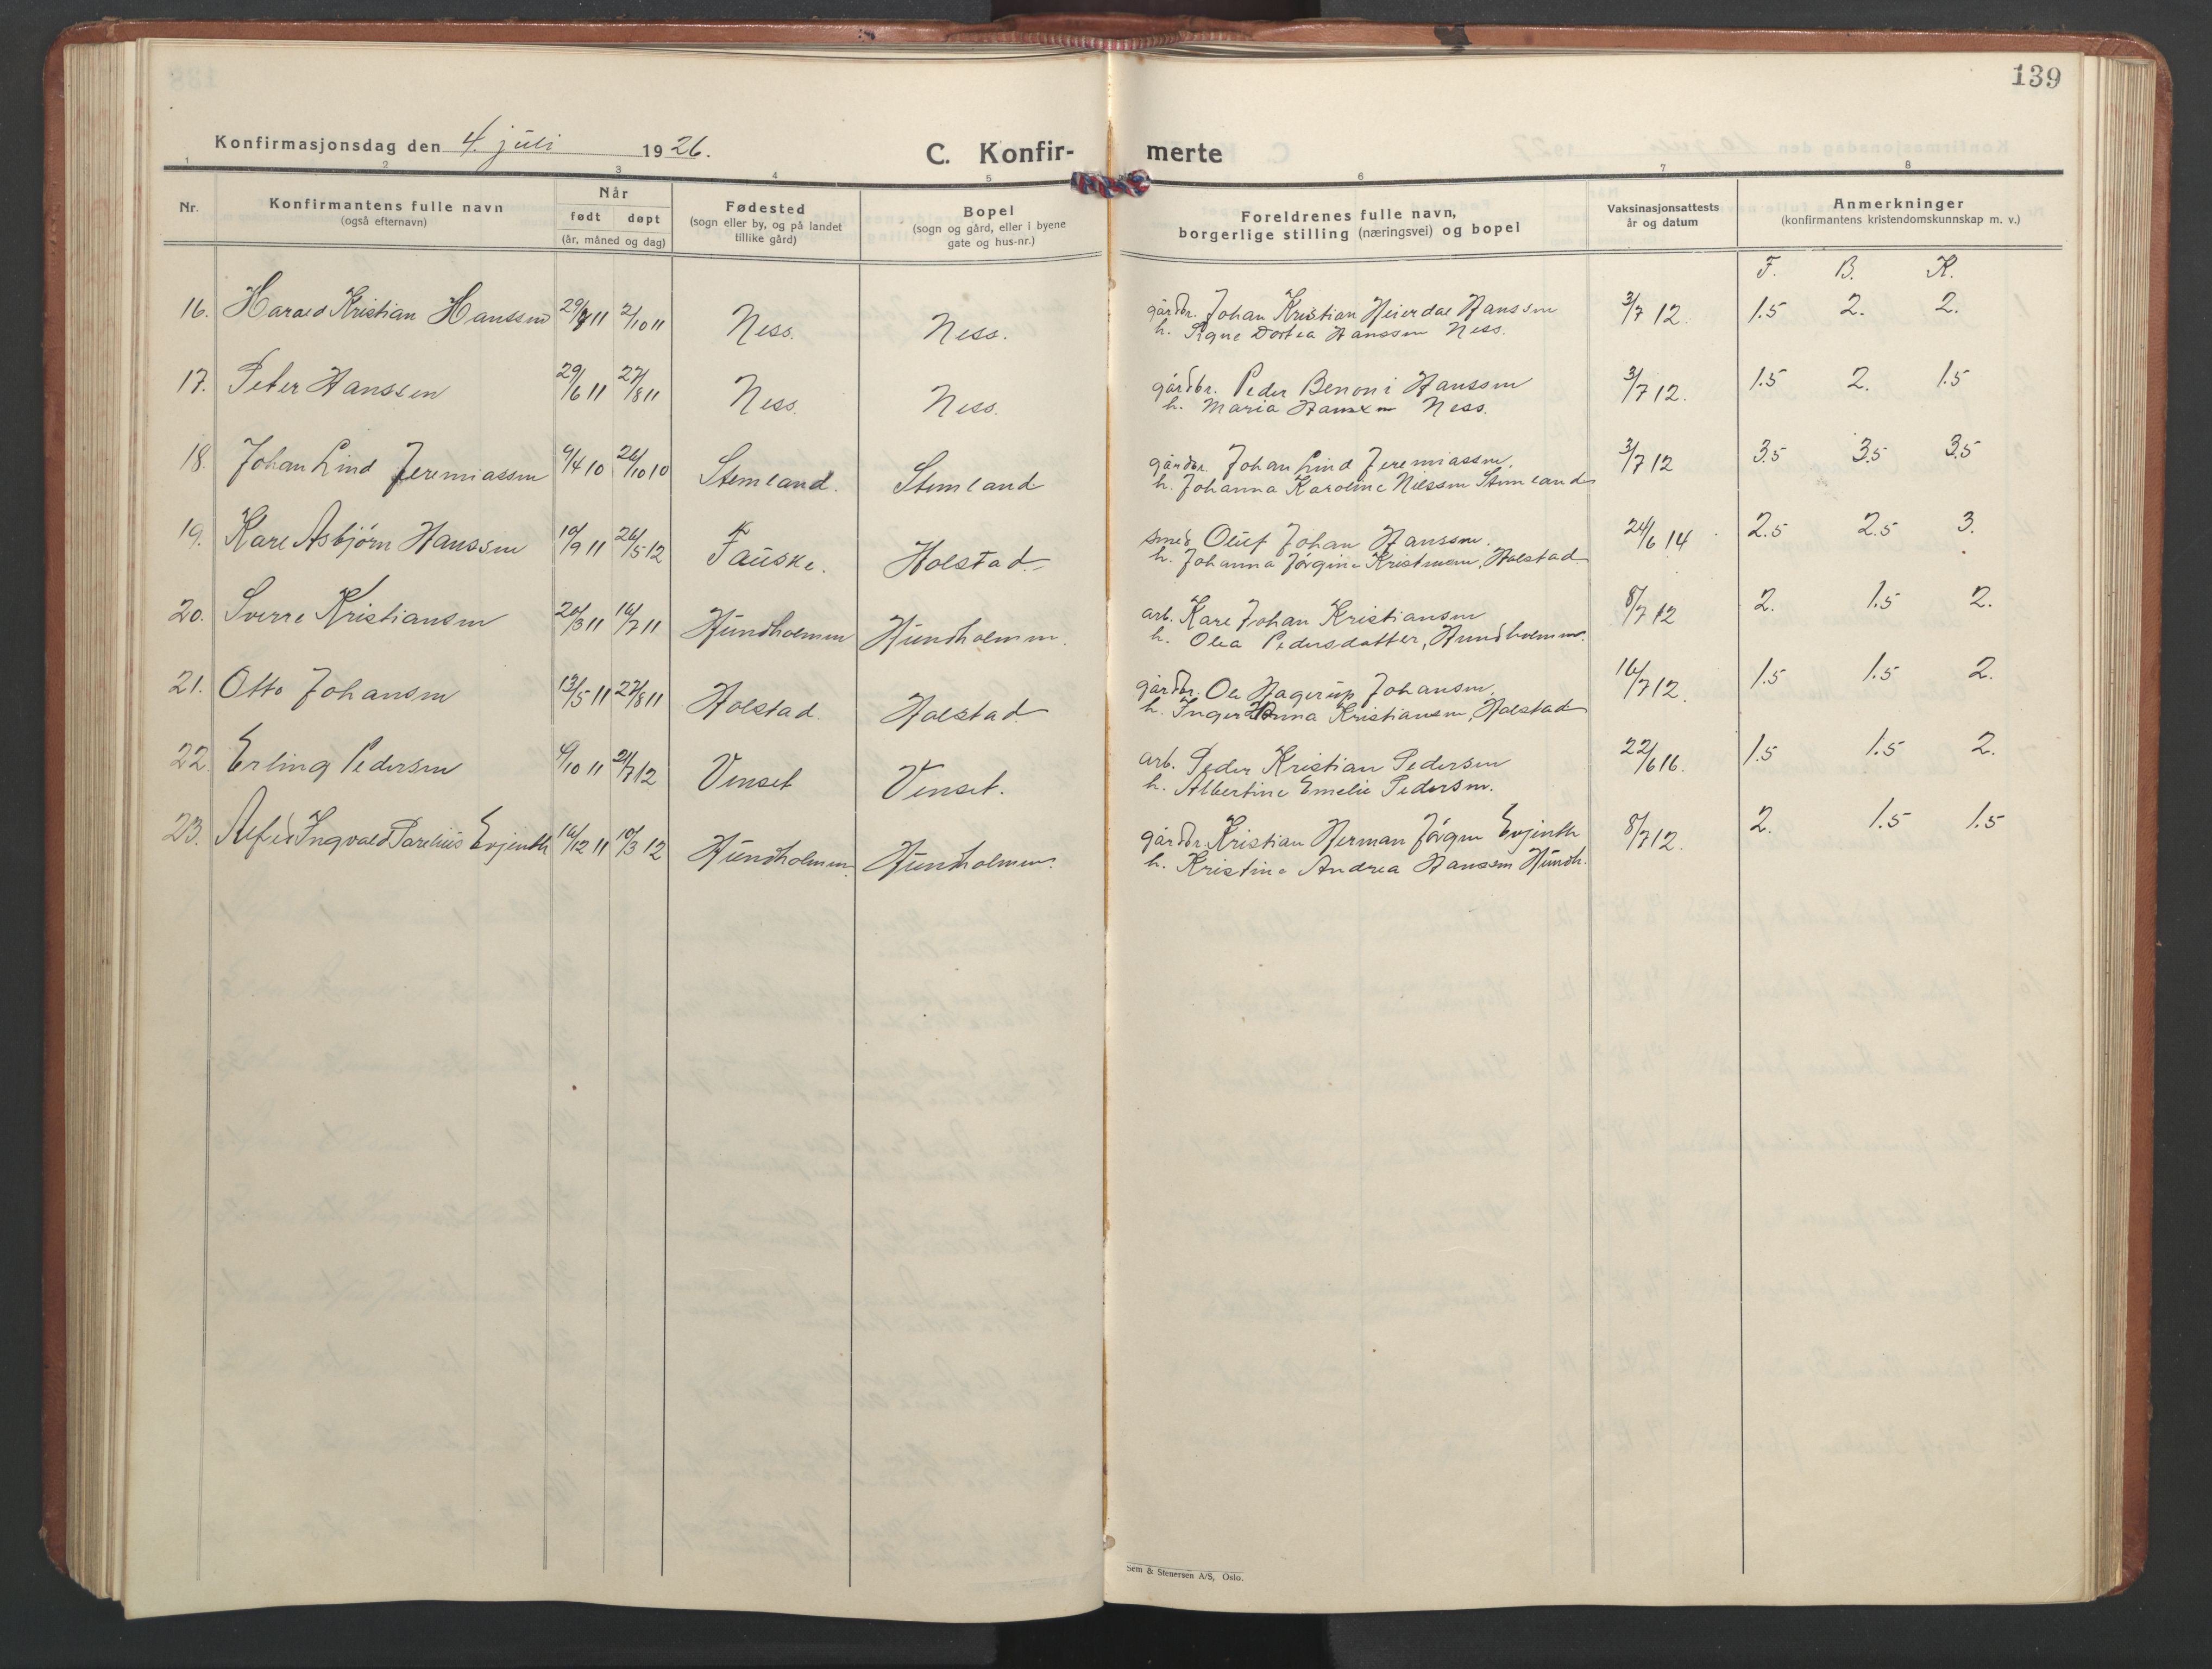 139
Konfirmasjonsdag den 4. juli 1926. C. Konfir- merte
1 2 3 4 5 6 7 8
Nr. Konfirmantens fulle navn (også efternavn) Når født døpt (år, måned og dag) Fødested (sogn eller by, og på landet tillike gård) Bopel (sogn og gård, eller i byene gate og hus-nr.) Foreldrenes fulle navn, borgerlige stilling (næringsvei) og bopel Vaksinasjonsattests år og datum Anmerkninger (konfirmantens kristendomskunnskap m. v.)
F. B. K.
16. Harald Kristian Hanssen 29/8 11 2/10 11 Ness. Ness. gårdbr. Johan Kristian Heierdal Hanssen 3/7 12. 1.5 2. 2.
h. Signe Dortea Hanssen Ness.
17. Peter Hanssen 29/6 11 27/8 11 Ness. Ness. gårdbr. Peder Benoni Hanssen 3/7 12. 1.5 2. 1.5
h. Maria Hanssen Ness.
18. Johan Lind Jeremiassen 9/4 10 26/10 10 Stemland. Stemland gårdbr. Johan Lind Jeremiassen. 3/7 12 3.5 3.5 3.5
h. Johanna Karoline Nilssen Stemland
19. Kare Asbjørn Hanssen 19/9 11 26/5 12 Fauske. Holstad. smed Oluf Johan Hanssen. 24/6 14 2.5 2.5 3.
h. Johanna Jørgine Kristensen, Holstad
20. Sverre Kristiansen 20/3 11 16/7 11 Hundholmen Hundholmen. arb. Kare Johan Kristiansen 8/7 12 2. 1.5 2.
h. Olea Pedersdatter, Hundholmen.
21. Otto Johansen 13/5 11 27/8 11 Holstad. Holstad. gårdbr. Ole Hagerup Johansen. 16/7 12. 1.5 1.5 2.
h. Inger Anna Kristiansen, Holstad
22. Erling Pedersen 9/10 11 21/7 12 Venset Venset. arb. Peder Kristian Pedersen 22/6 16. 1.5 1.5 2.
h. Albertine Emelie Pedersen.
23. Alfred Ingvald Parelius Evjenth 16/12 11 10/3 12 Hundholmen. Hundholmen. gårdbr. Kristian Herman Jørgen Evjenth 8/7 12. 2. 1.5 1.5
h. Kristine Andrea Hanssen Hundh.
Sem & Stenersen A/S, Oslo.